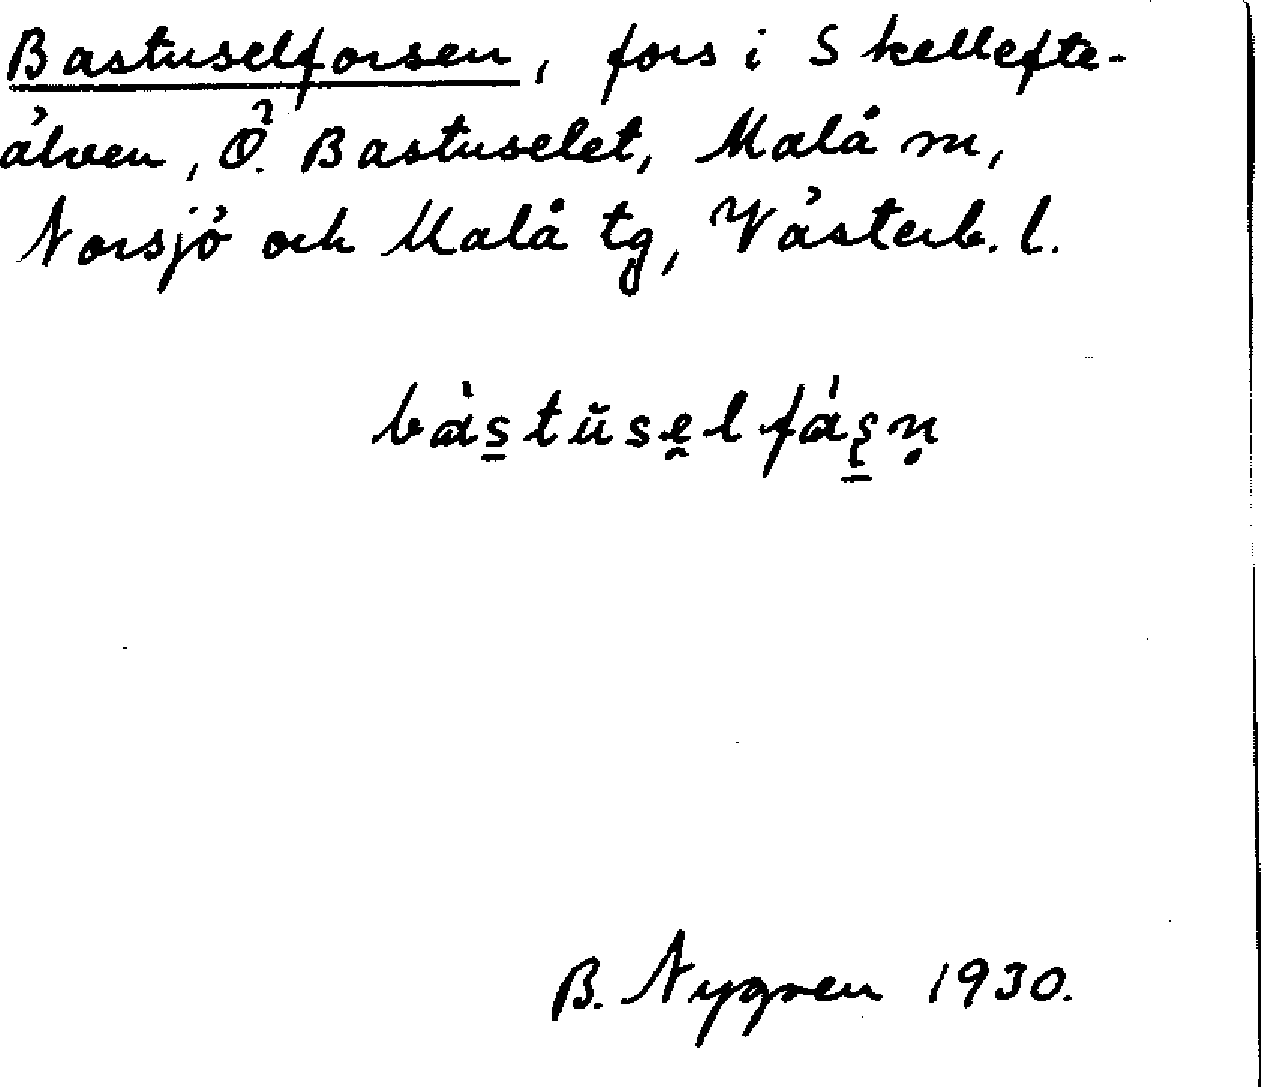 Bastuselforsen, fors i Skellefte-
älven, Ö. Bastuselet, Malå sn,
Norsjö och Malå tg, Västerb. l.
bás̲tŭsę̯lfáʂ̲ṇ
B. Nygren 1930.